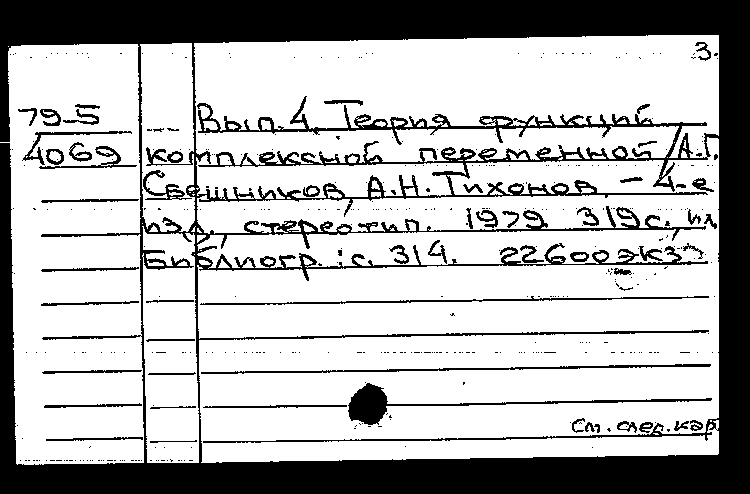 3.
79-5 Вып. 4. Теория функций
4069 комплексной переменной / А.Г.
Свешников, А.Н. Тихонов. - 4-е
изд., стереотип. 1979. 319 с., ил.
Библиогр.: с. 314. 22600 экз.
См. след. кар.